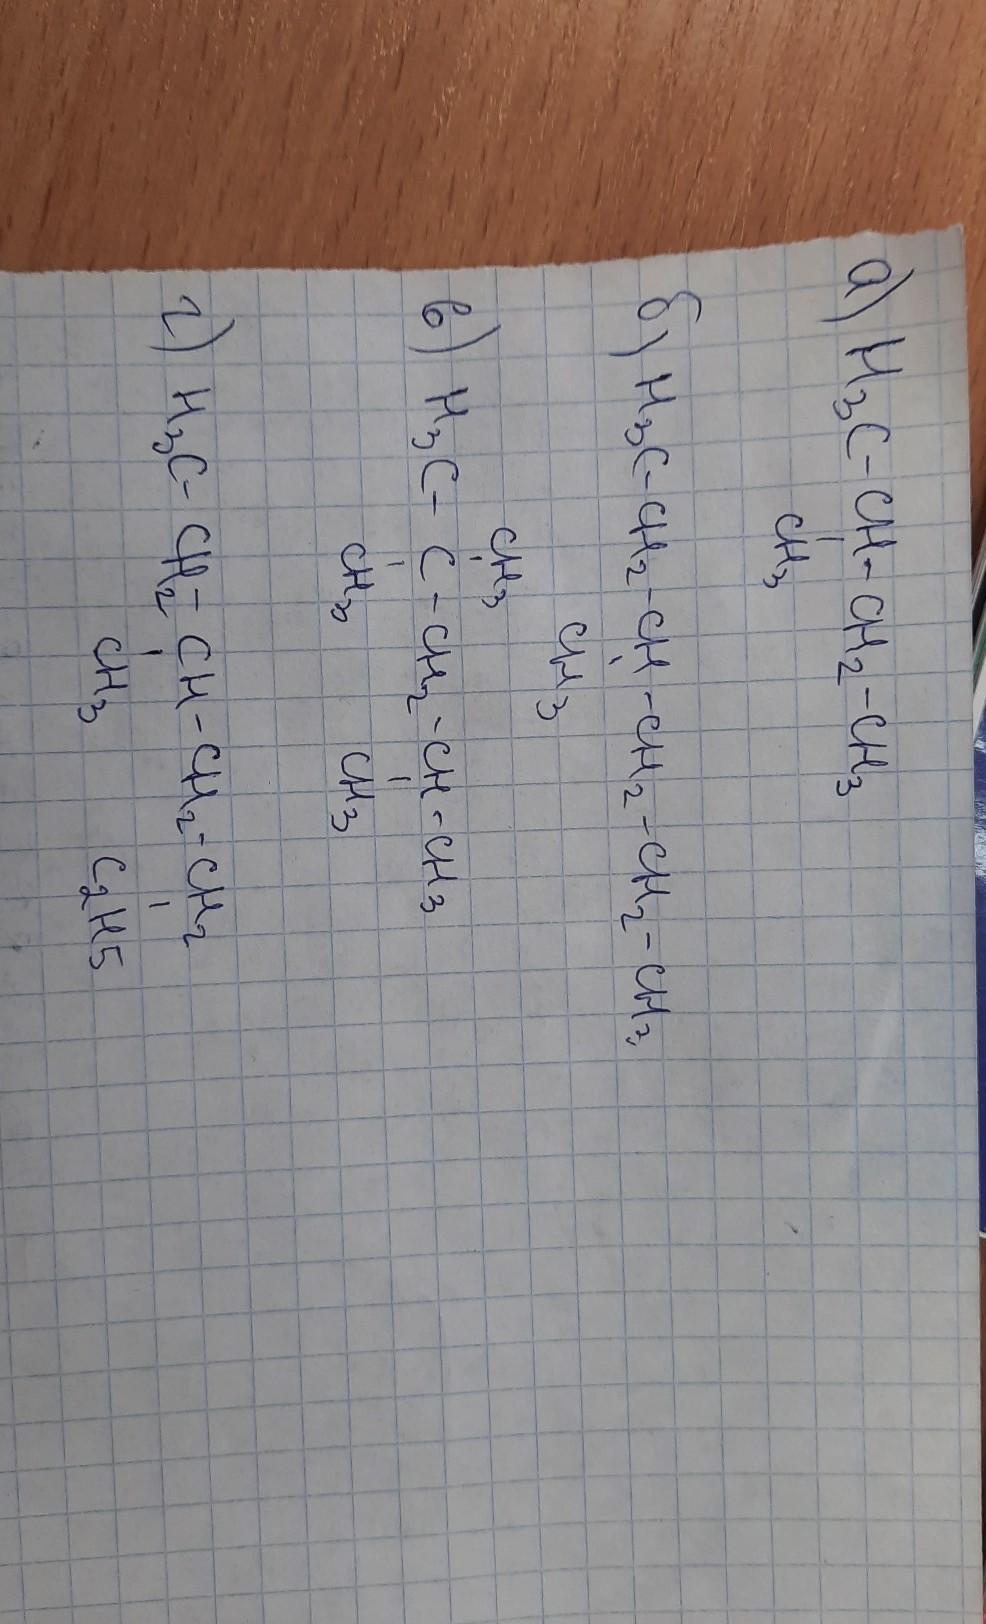 а) H₃C-CH-CH₂-CH₃
CH₃
б) H₃C-CH₂-CH-CH₂-CH₂-CH₃
CH₃
CH₃
в) H₃C-C-CH₂-CH-CH₃
CH₃ CH₃
г) H₃C-CH₂-CH-CH₂-CH₂
CH₃ C₂H5